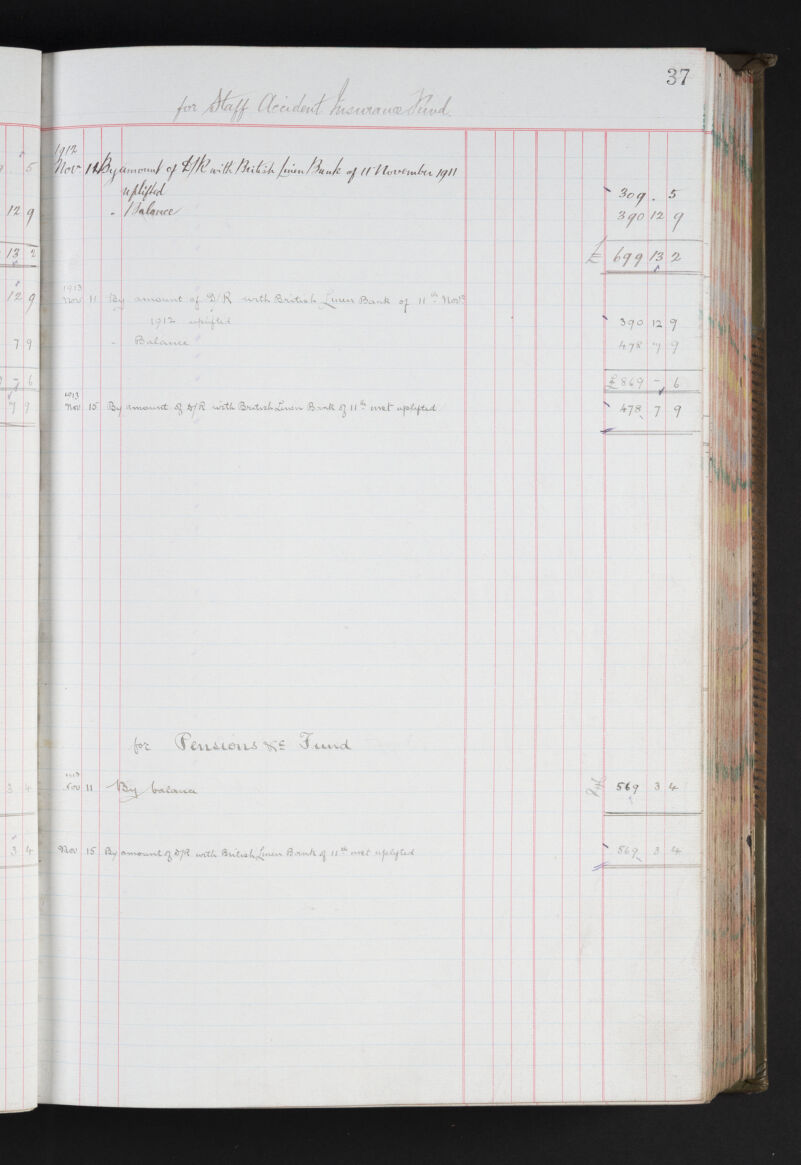 37
for Staff Accident Insurance Fund.
1912
Nov 12 By amount of D/R with British Linen Bank of 11 November 1911
uplifted 309 . 5
" Balance 390 12 9
£ 699 13 2
1913
Nov 11 By amount of D/R with British Linen Bank of 11th Novr
1912 uplifted 390 12 9
" Balance 478 7 9
£869 - 6
1913
Nov 15 By amount of D/R with British Linen Bank of 11th inst uplifted 478 7 9
for Pensions &c Fund
1913
Nov 11 By balance 569 3 4
Nov 15 By amount of D/R with British Linen Bank of 11th inst uplifted 569 3 4
5
12 9
13 2
12 9
7 9
7 6
7 9
3 4
3 4